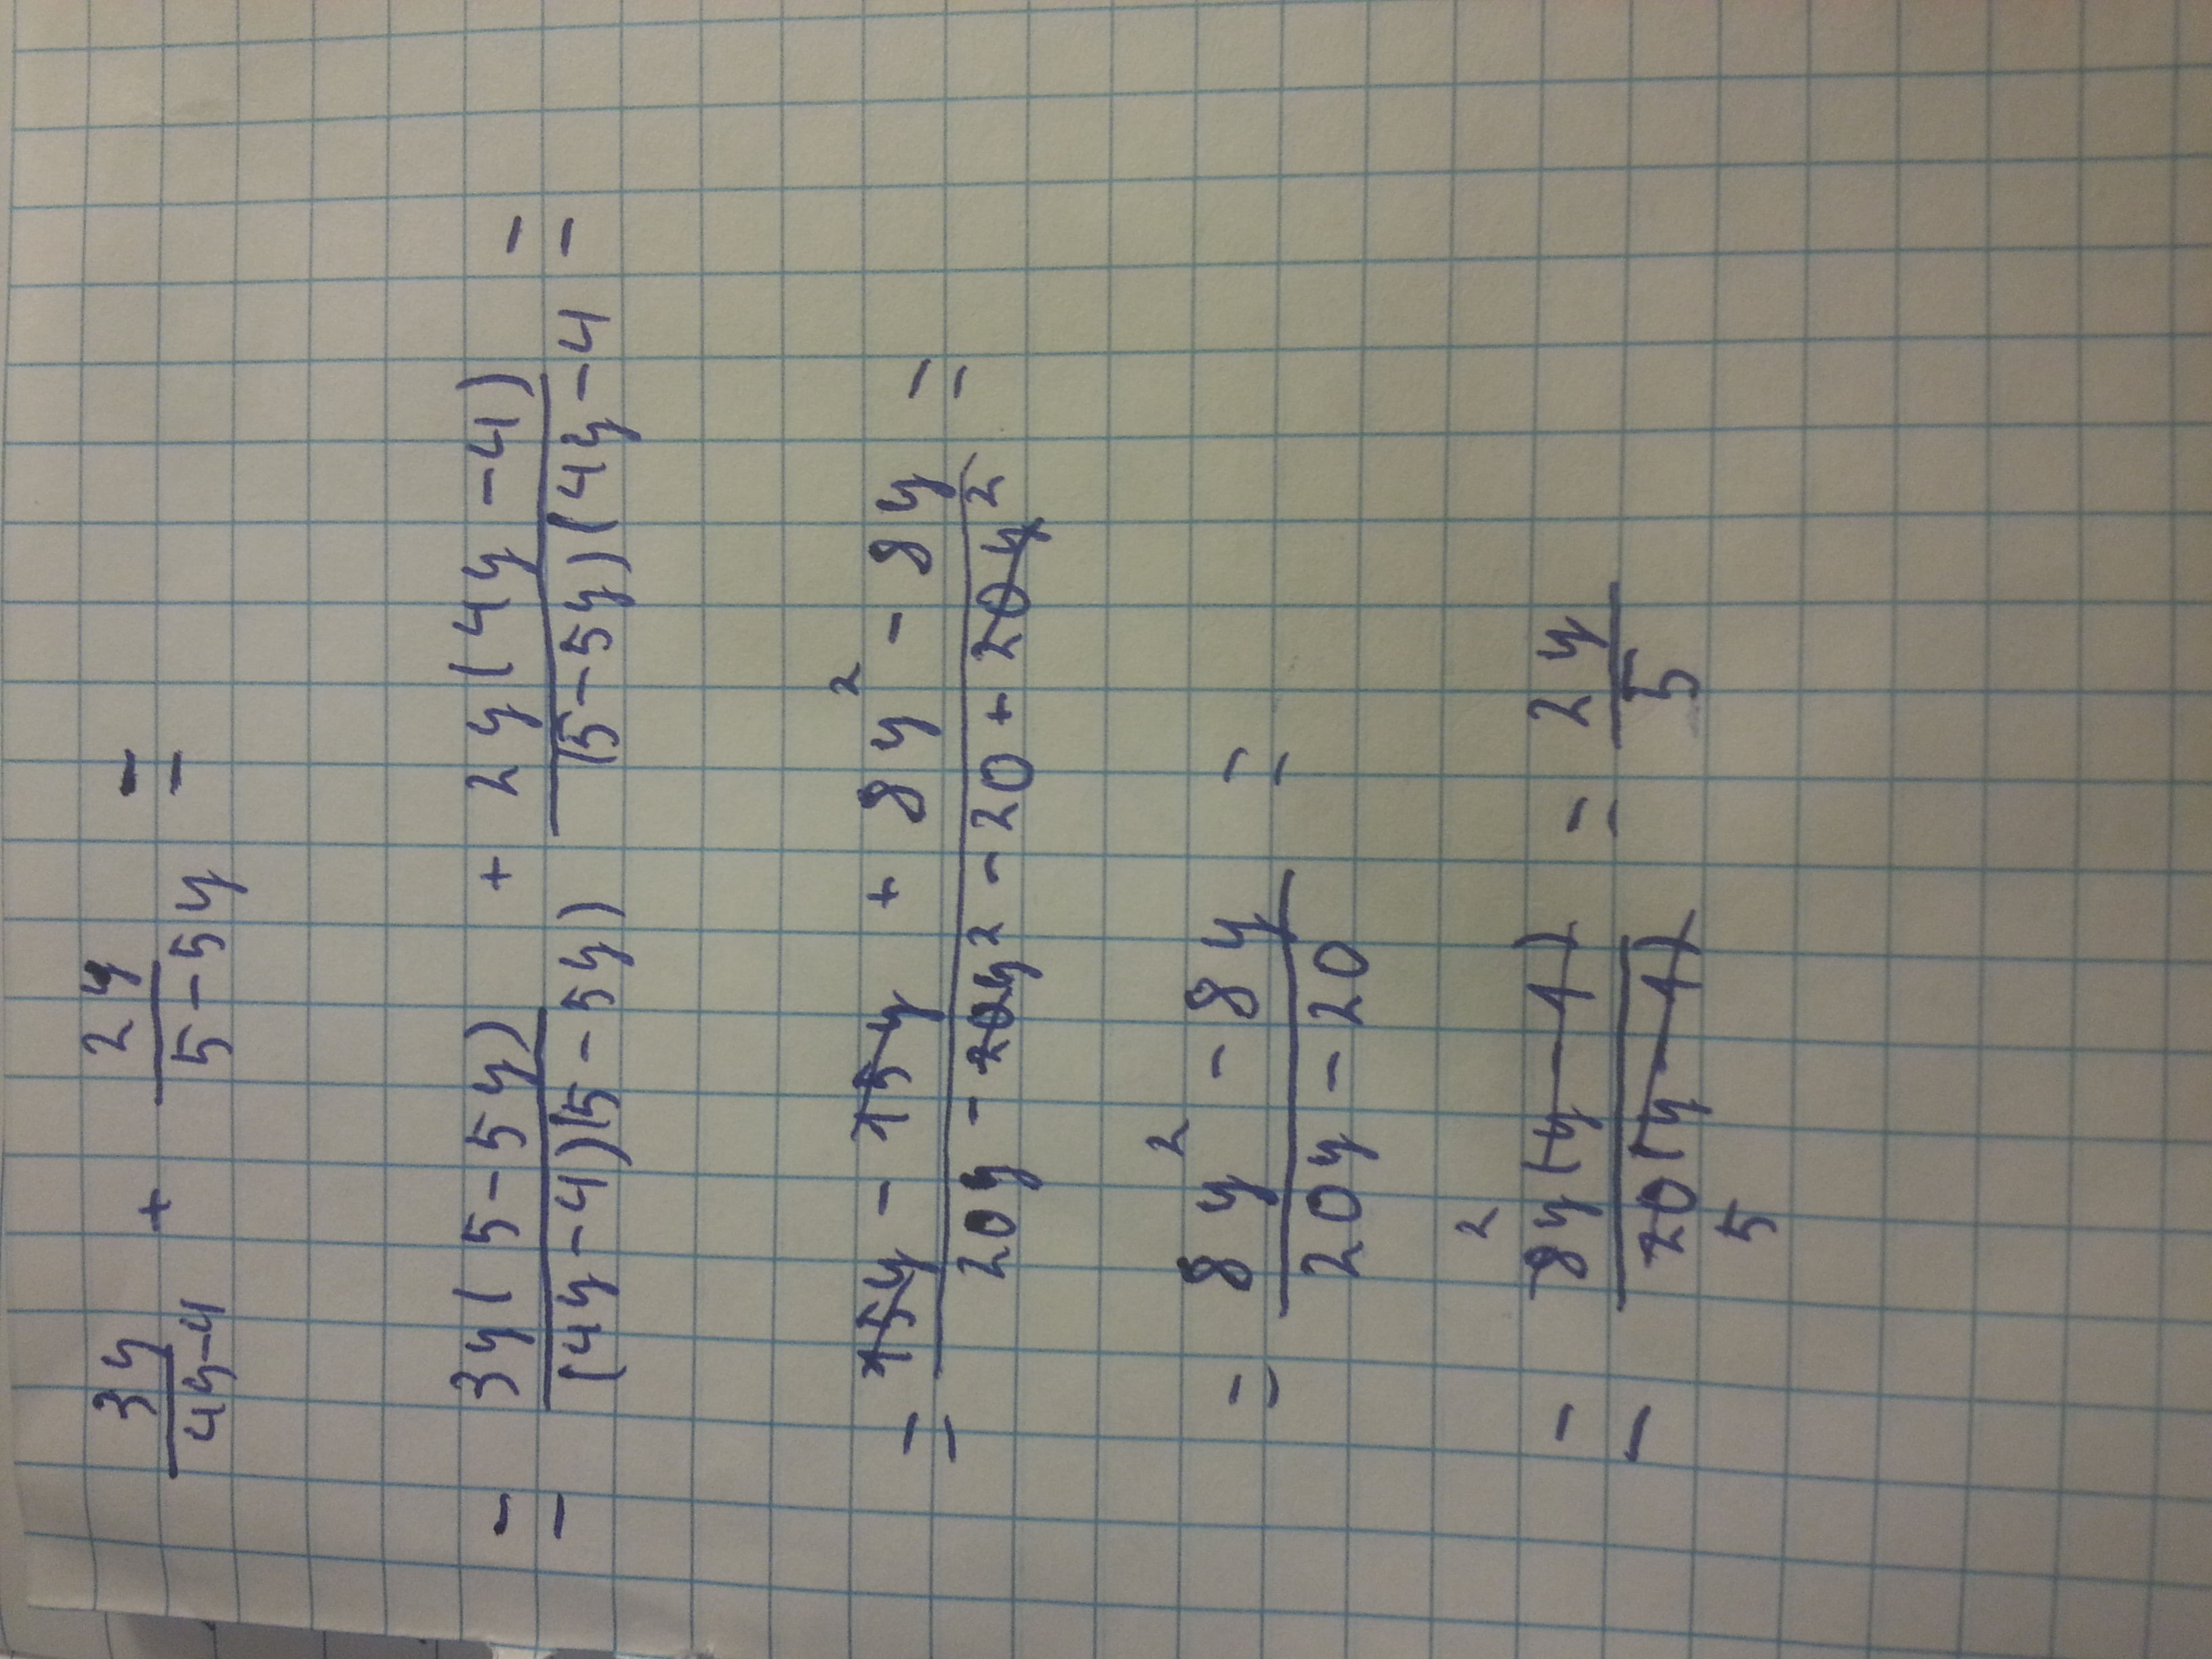 3y/(4y-4) + 2y/(5-5y) =
= 3y(5-5y)/(4y-4)(5-5y) + 2y(4y-4)/(5-5y)(4y-4 =
= 15y - 15y + 8y² - 8y / 20y - 20y² - 20 + 20y² =
= 8y² - 8y / 20y - 20 =
= 8y(y-1) 2 / 20(y-1) 5 = 2y/5